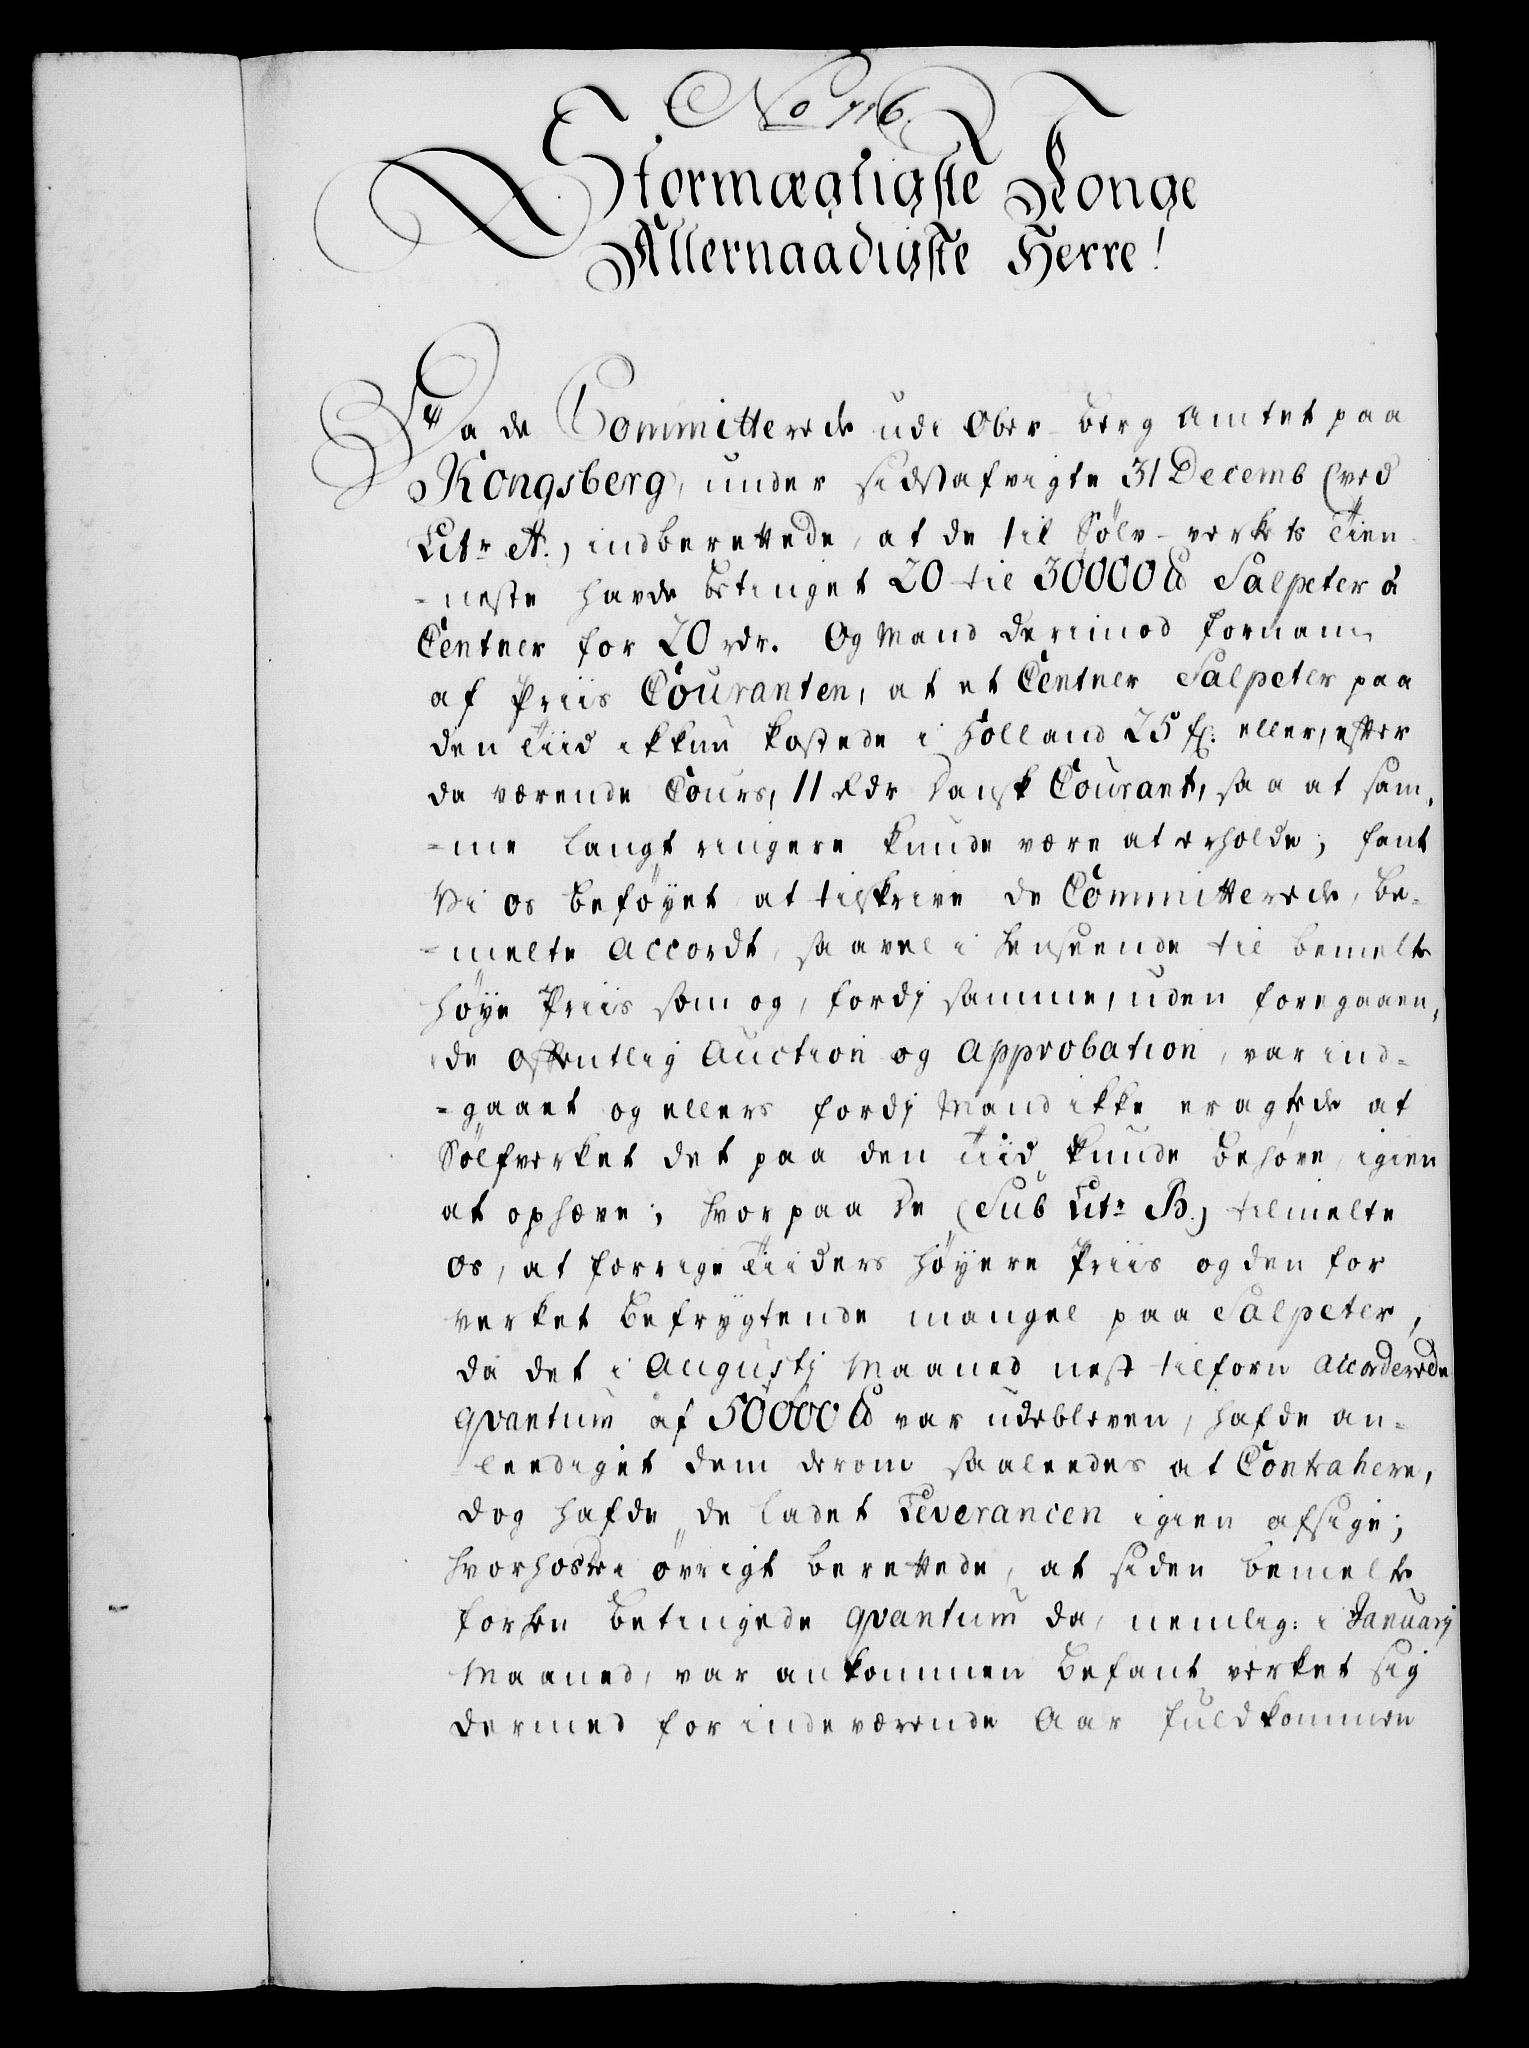 No 116.
Stormægtigste Konge
Allernaadigste Herre!
Da de Committerede udi Ober-Berg Amtet paa
Kongsberg, under sidstafvigte 31 Decemb (ved
Litr A.) indberettede, at de til Sølv-verkets Tien-
-neste havde betinget 20 til 30000 ℔ Salpeter à
Centner for 20 rdr. Og Mand derimod fornam
af Priis Couranten, at et Centner Salpeter paa
den Tiid ikkun kostede i Holland 25 fl: eller, efter
da værende Cours, 11 Rdr Dansk Courant, saa at sam-
-me langt ringere kunde være at erholde; fant
Vi os beføyet at tilskrive de Committerede, be-
-melte Accordt, saavel i henseende til bemelte
høye Priis som og, fordj samme, uden foregaaen-
de offentlig Auction og Approbation, var ind-
-gaaet og ellers fordj Mand ikke eragtede at
Sølfverket det paa den Tiid kunde behøve, igien
at ophæve; hvorpaa De (Sub Litr B.) tilmelte
os, at forrige Tiiders høyere Priis og den for
verket befrygtende mangel paa Salpeter,
da det i Augustj Maaned nest tilforn Accorderede
qvantum af 50000 ℔ var udebleven, hafde an-
leediget dem derom saaleedes at Contrahere,
dog hafde de ladet Leverancen igien afsige;
hvorhos de i øvrigt berettede, at siden bemelte
forhen betingede qvantum da, nemlig: i Januarj
Maaned, var ankommen befant verket sig
dermed for indeværende Aar fuldkommen